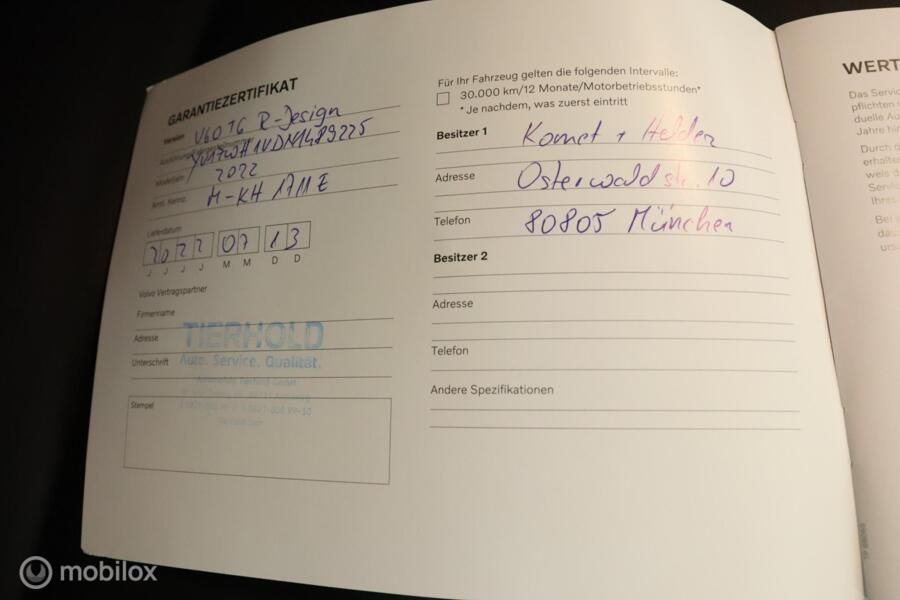 GARANTIEZERTIFIKAT
Version V60 T6 R-Design
Modelljahr 2022
Amtl. Kennz. M-KH 1711E
Lieferdatum
2022 07 13
J J J J M M D D
Volvo Vertragspartner
Firmenname
Adresse
Unterschrift
TIERHOLD
Auto. Service. Qualität.
Stempel
Für Ihr Fahrzeug gelten die folgenden Intervalle:
30.000 km/12 Monate/Motorbetriebsstunden*
*Je nachdem, was zuerst eintritt
Besitzer 1 Komet + Helden
Adresse Osterwaldstr. 10
Telefon 80805 München
Besitzer 2
Adresse
Telefon
Andere Spezifikationen
WERT
Das Servic
pflichten
duelle Au
Jahre hin
Durch d
erhalten
weis d
Servic
Ihres
Bei
das
urs
mobilox